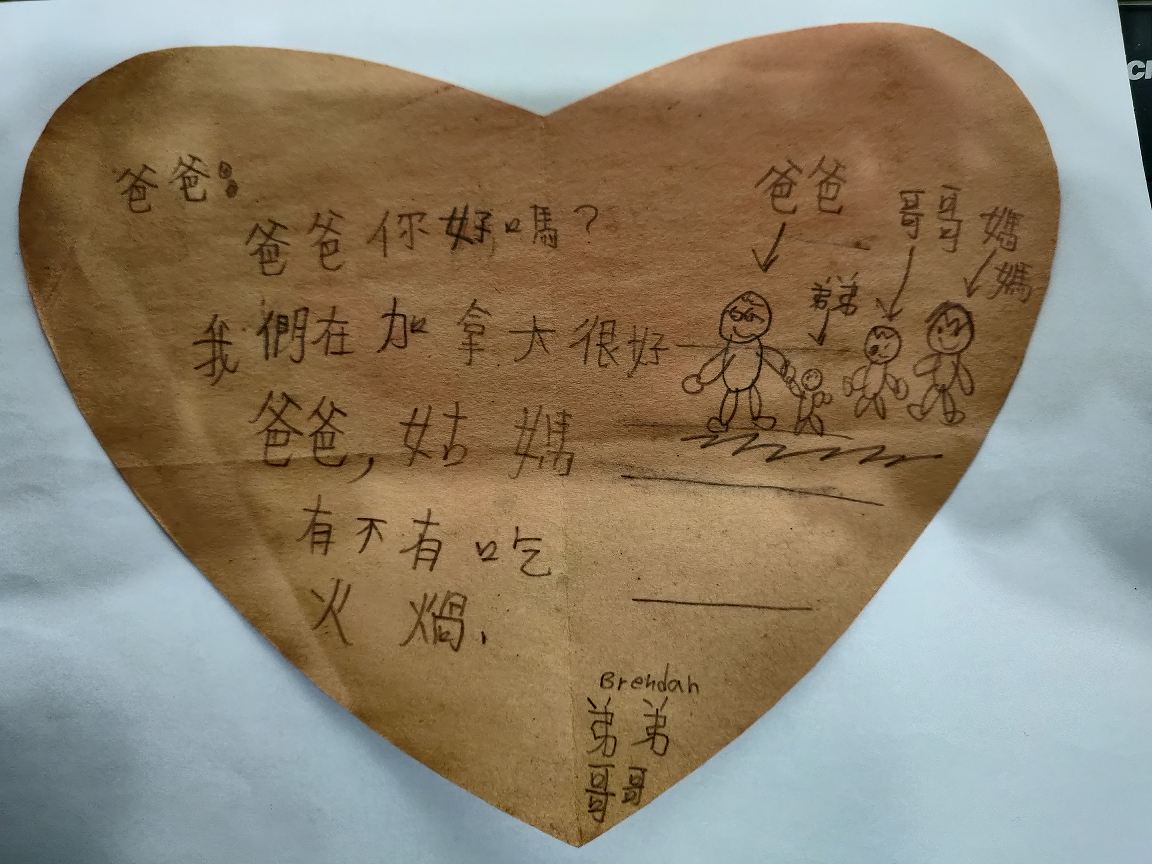 爸爸：
爸爸你好嗎？
我們在加拿大很好
爸爸，姑媽
有不有吃
火煱.
爸爸
哥哥
媽媽
弟弟
Brendan
弟弟
哥哥